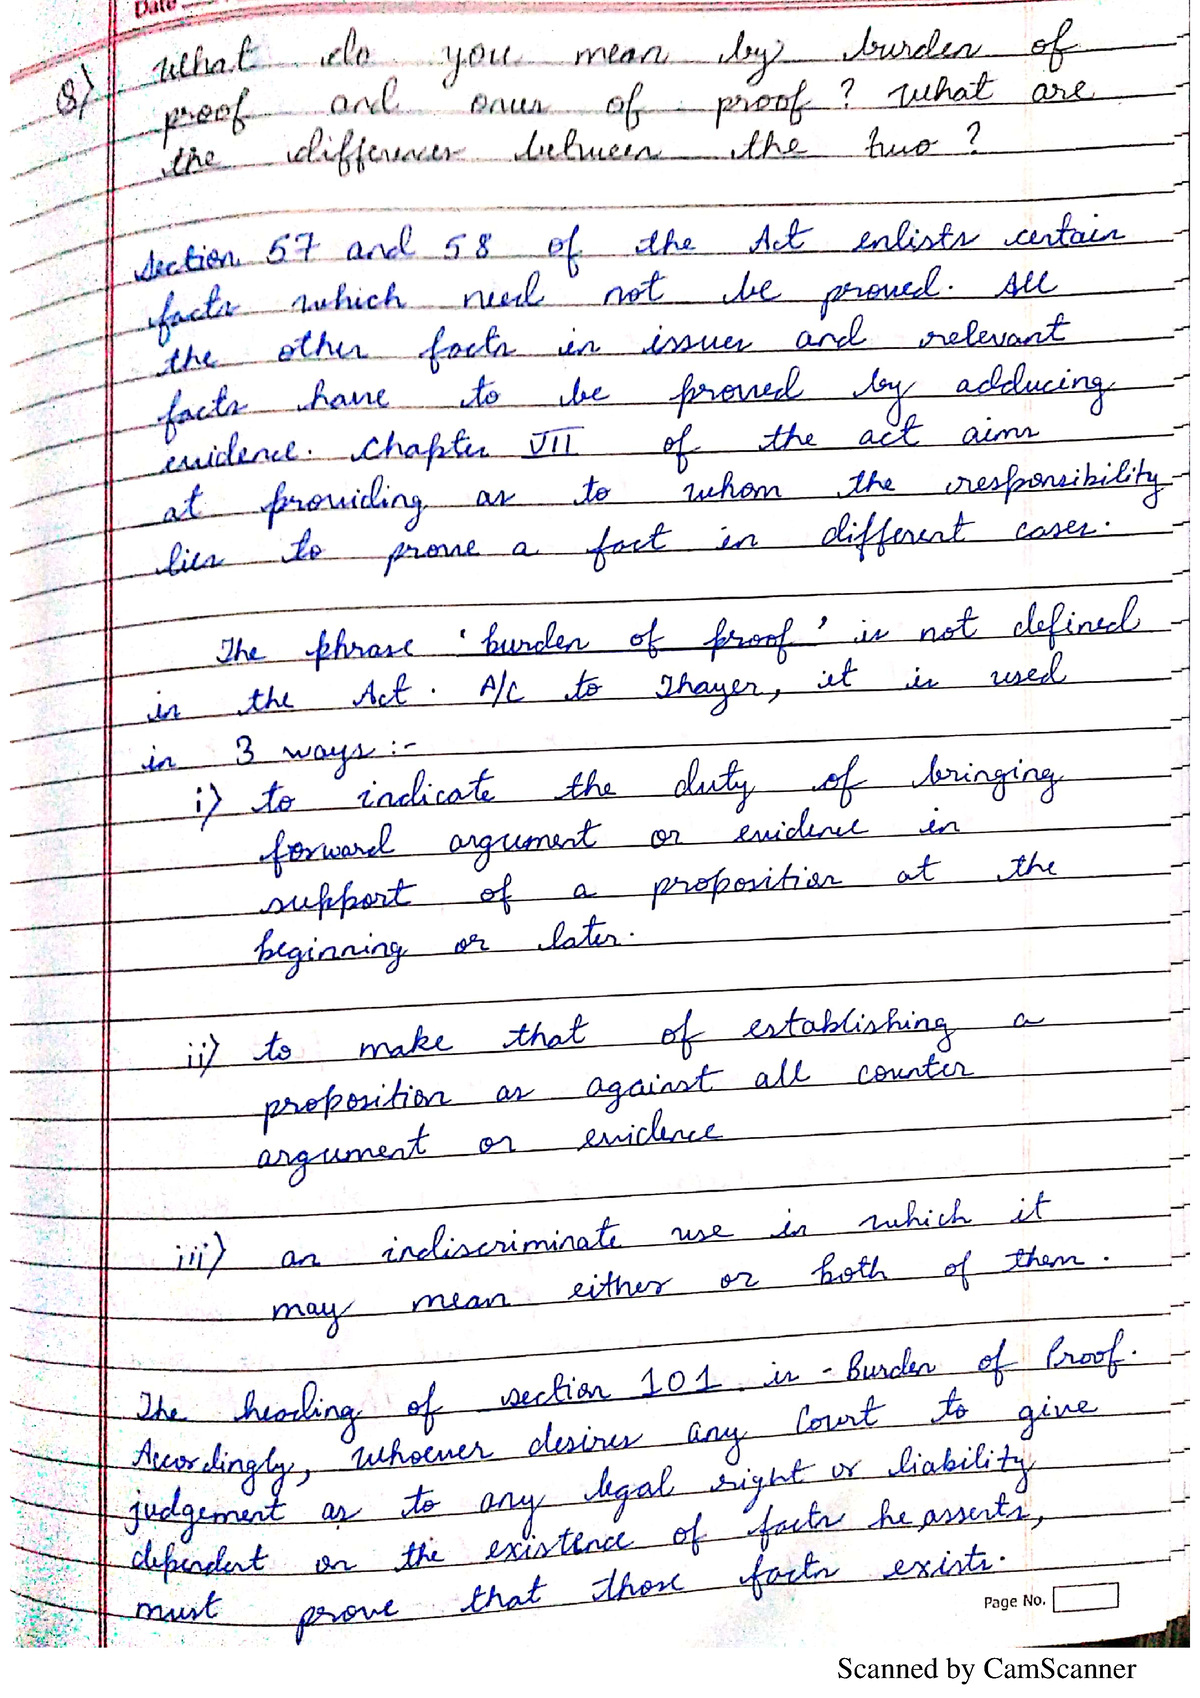 Date
Q) What do you mean by burden of
proof and onus of proof ? What are
the differences between the two ?
Section 57 and 58 of the Act enlists certain
facts which need not be proved. All
the other facts in issues and relevant
facts have to be proved by adducing
evidence. Chapter VII of the act aims
at providing as to whom the responsibility
lies to prove a fact in different cases.
The phrase 'burden of proof' is not defined
in the Act. A/C to Thayer, it is used
in 3 ways :-
i) to indicate the duty of bringing
forward argument or evidence in
support of a proposition at the
beginning or later.
ii) to make that of establishing a
proposition as against all counter
argument or evidence
iii) an indiscriminate use in which it
may mean either or both of them.
The heading of section 101 is - Burden of Proof.
Accordingly, Whoever desires any Court to give
judgement as to any legal right or liability
dependent on the existence of facts he asserts,
must prove that those facts exists.
Page No.
Scanned by CamScanner